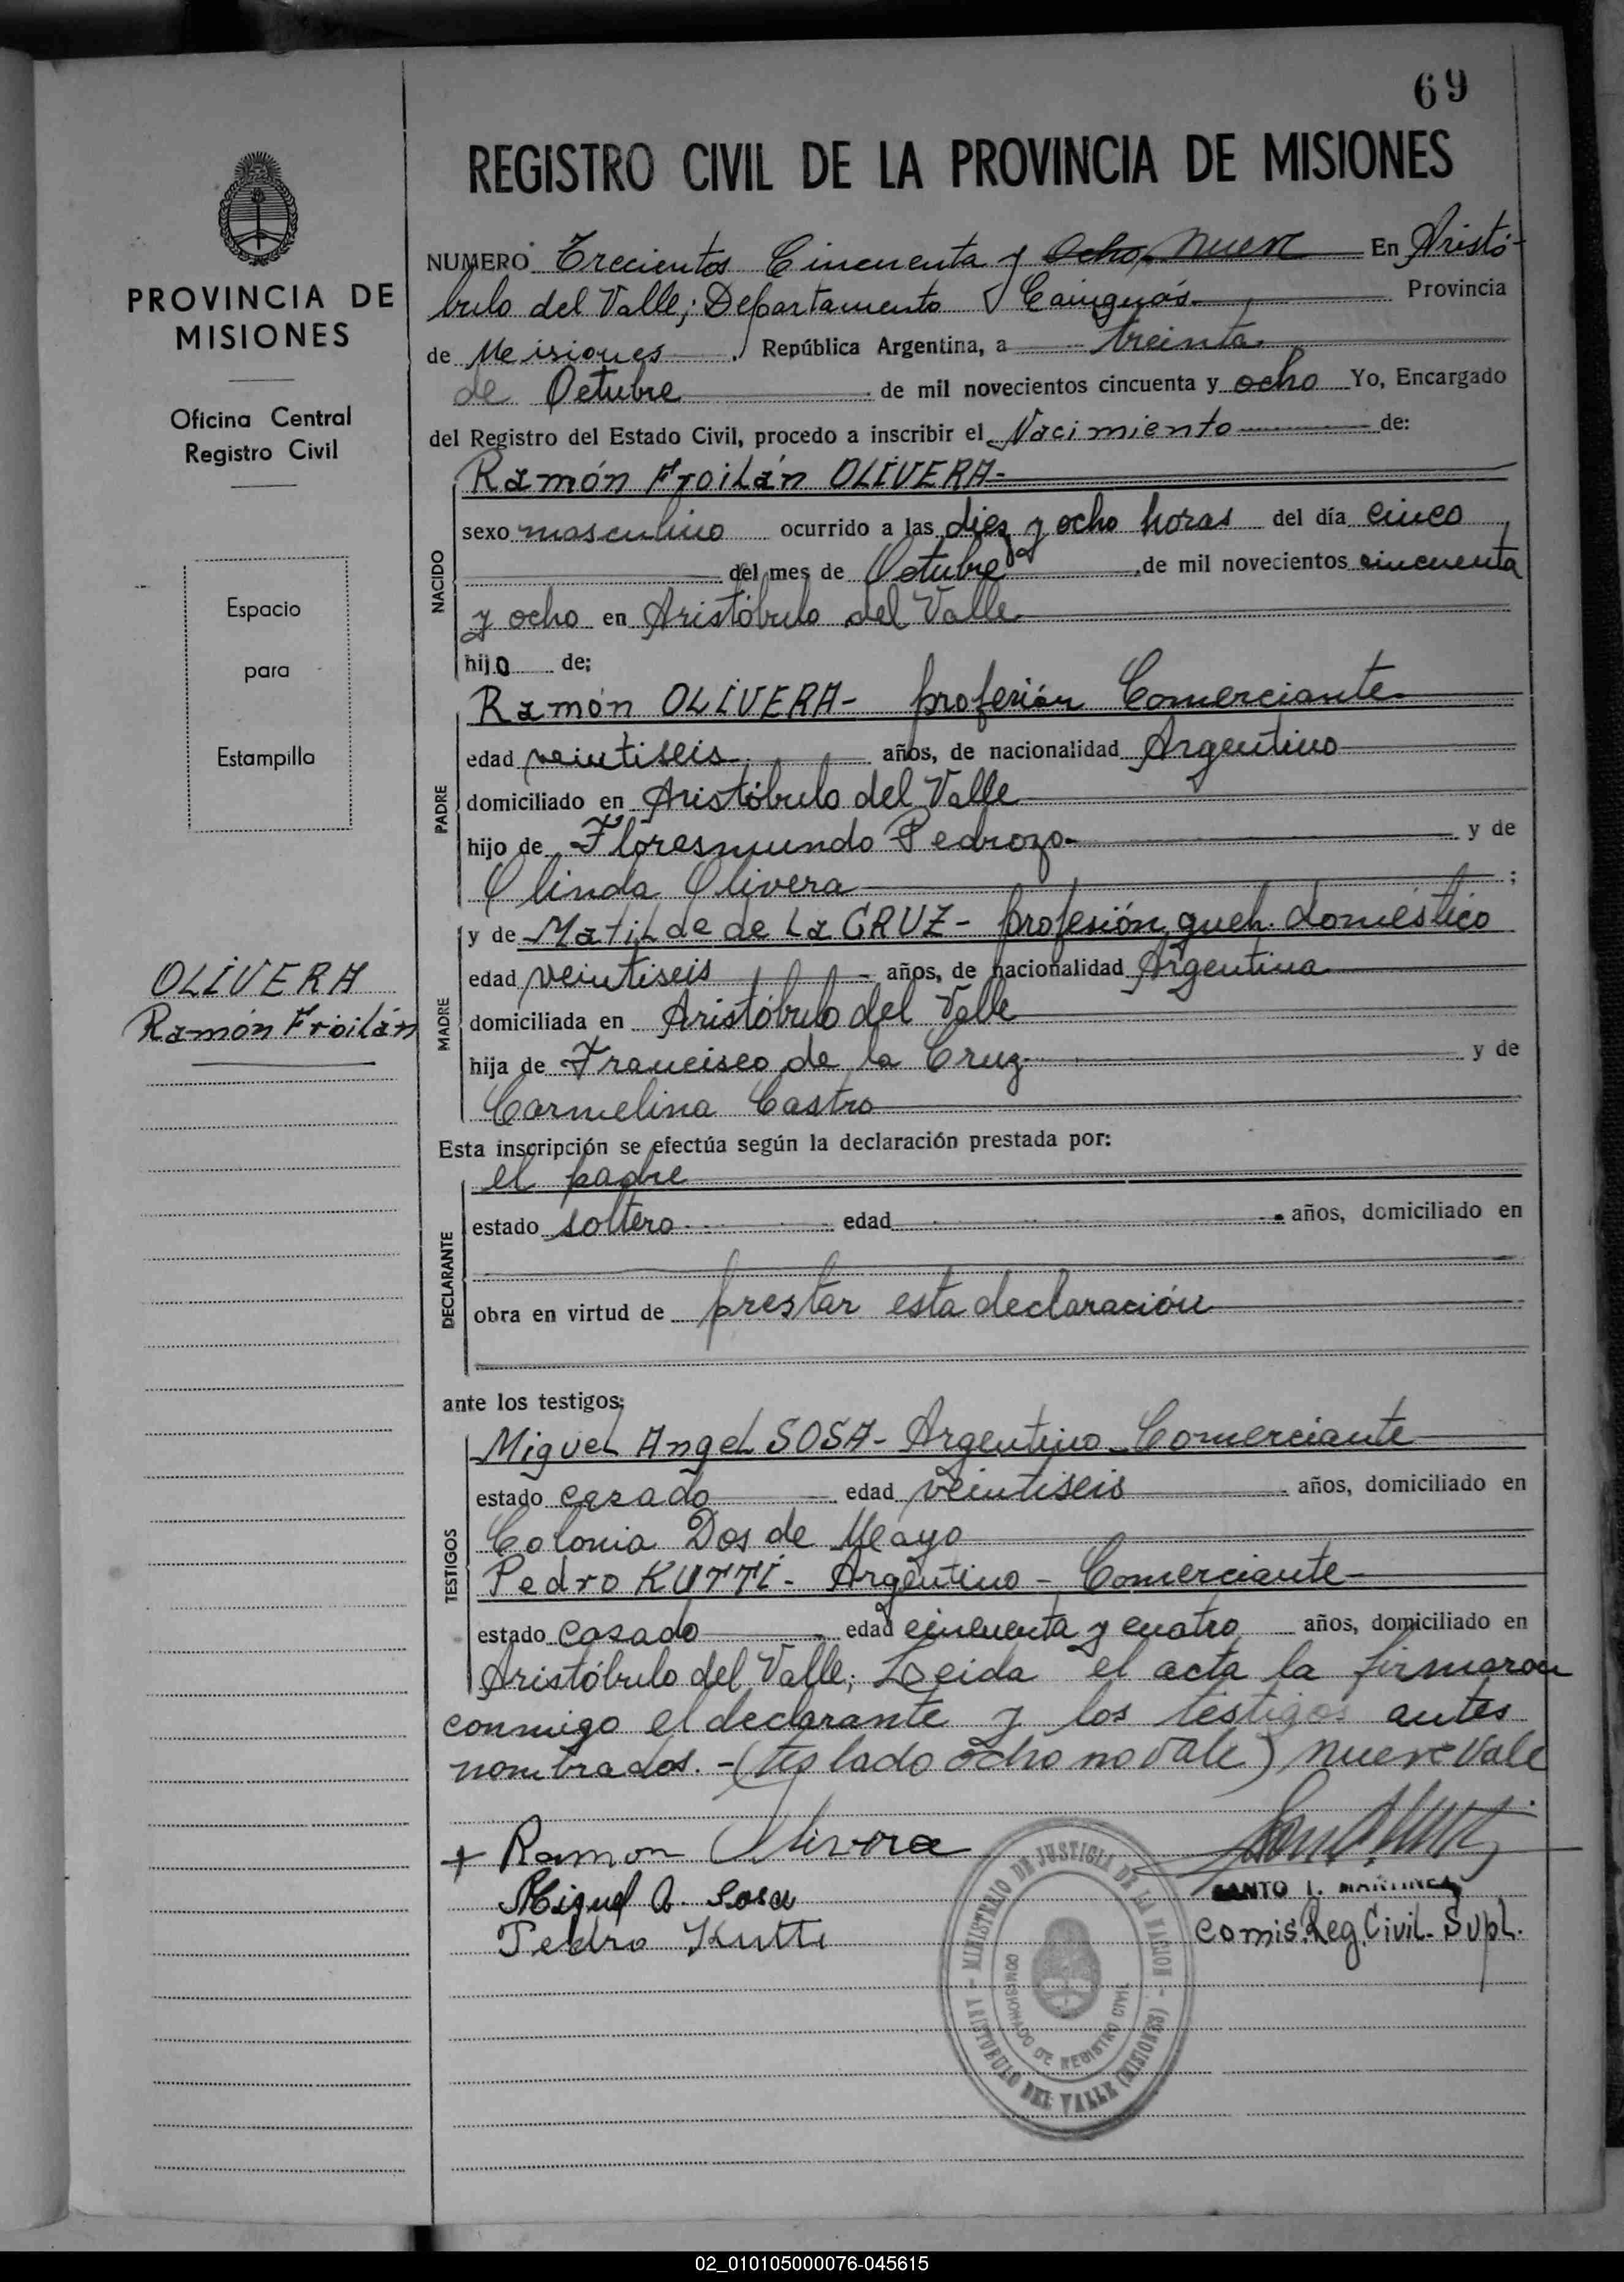 69
REGISTRO CIVIL DE LA PROVINCIA DE MISIONES
PROVINCIA DE
MISIONES
Oficina Central
Registro Civil
Espacio
para
Estampilla
OLIVERA
Ramón Froilán
NUMERO Trecientos Cincuenta y ocho, nueve En Aristó-
bulo del Valle; Departamento Cainguás Provincia
de Misiones, República Argentina, a treinta
de Octubre de mil novecientos cincuenta y ocho Yo, Encargado
del Registro del Estado Civil, procedo a inscribir el Nacimiento de:
NACIDO
Ramón Froilán OLIVERA-
sexo masculino ocurrido a las diez y ocho horas del día cinco
del mes de Octubre, de mil novecientos cincuenta
y ocho en Aristóbulo del Valle
hijo de:
PADRE
Ramón OLIVERA- profesión Comerciante
edad veintiseis años, de nacionalidad Argentino
domiciliado en Aristóbulo del Valle
hijo de Floresmundo Pedrozo- y de
Olinda Olivera ;
MADRE
y de Matilde de La CRUZ- profesión, queh. doméstico
edad veintiseis años, de nacionalidad Argentina
domiciliada en Aristóbulo del Valle
hija de Francisco de la Cruz y de
Carmelina Castro
Esta inscripción se efectúa según la declaración prestada por:
DECLARANTE
el padre
estado soltero edad años, domiciliado en
obra en virtud de prestar esta declaración
ante los testigos:
TESTIGOS
Miguel Angel SOSA- Argentino Comerciante
estado casado edad veintiseis años, domiciliado en
Colonia Dos de Mayo
Pedro KUTTI- Argentino - Comerciante-
estado casado edad cincuenta y cuatro años, domiciliado en
Aristóbulo del Valle; Leida el acta la firmaron
conmigo el declarante y los testigos antes
nombrados.-(teslado ocho no vale) nueve vale
+ Ramon Olivera
Miguel A. Sosa
Pedro Kutti
SANTO I. MARTINEZ
Comis. Reg. Civil. Supl.
- MINISTERIO DE JUSTICIA DE LA NACION -
ARISTOBULO DEL VALLE (MISIONES)
COMISIONADO DE REGISTRO CIVIL
02_010105000076-045615